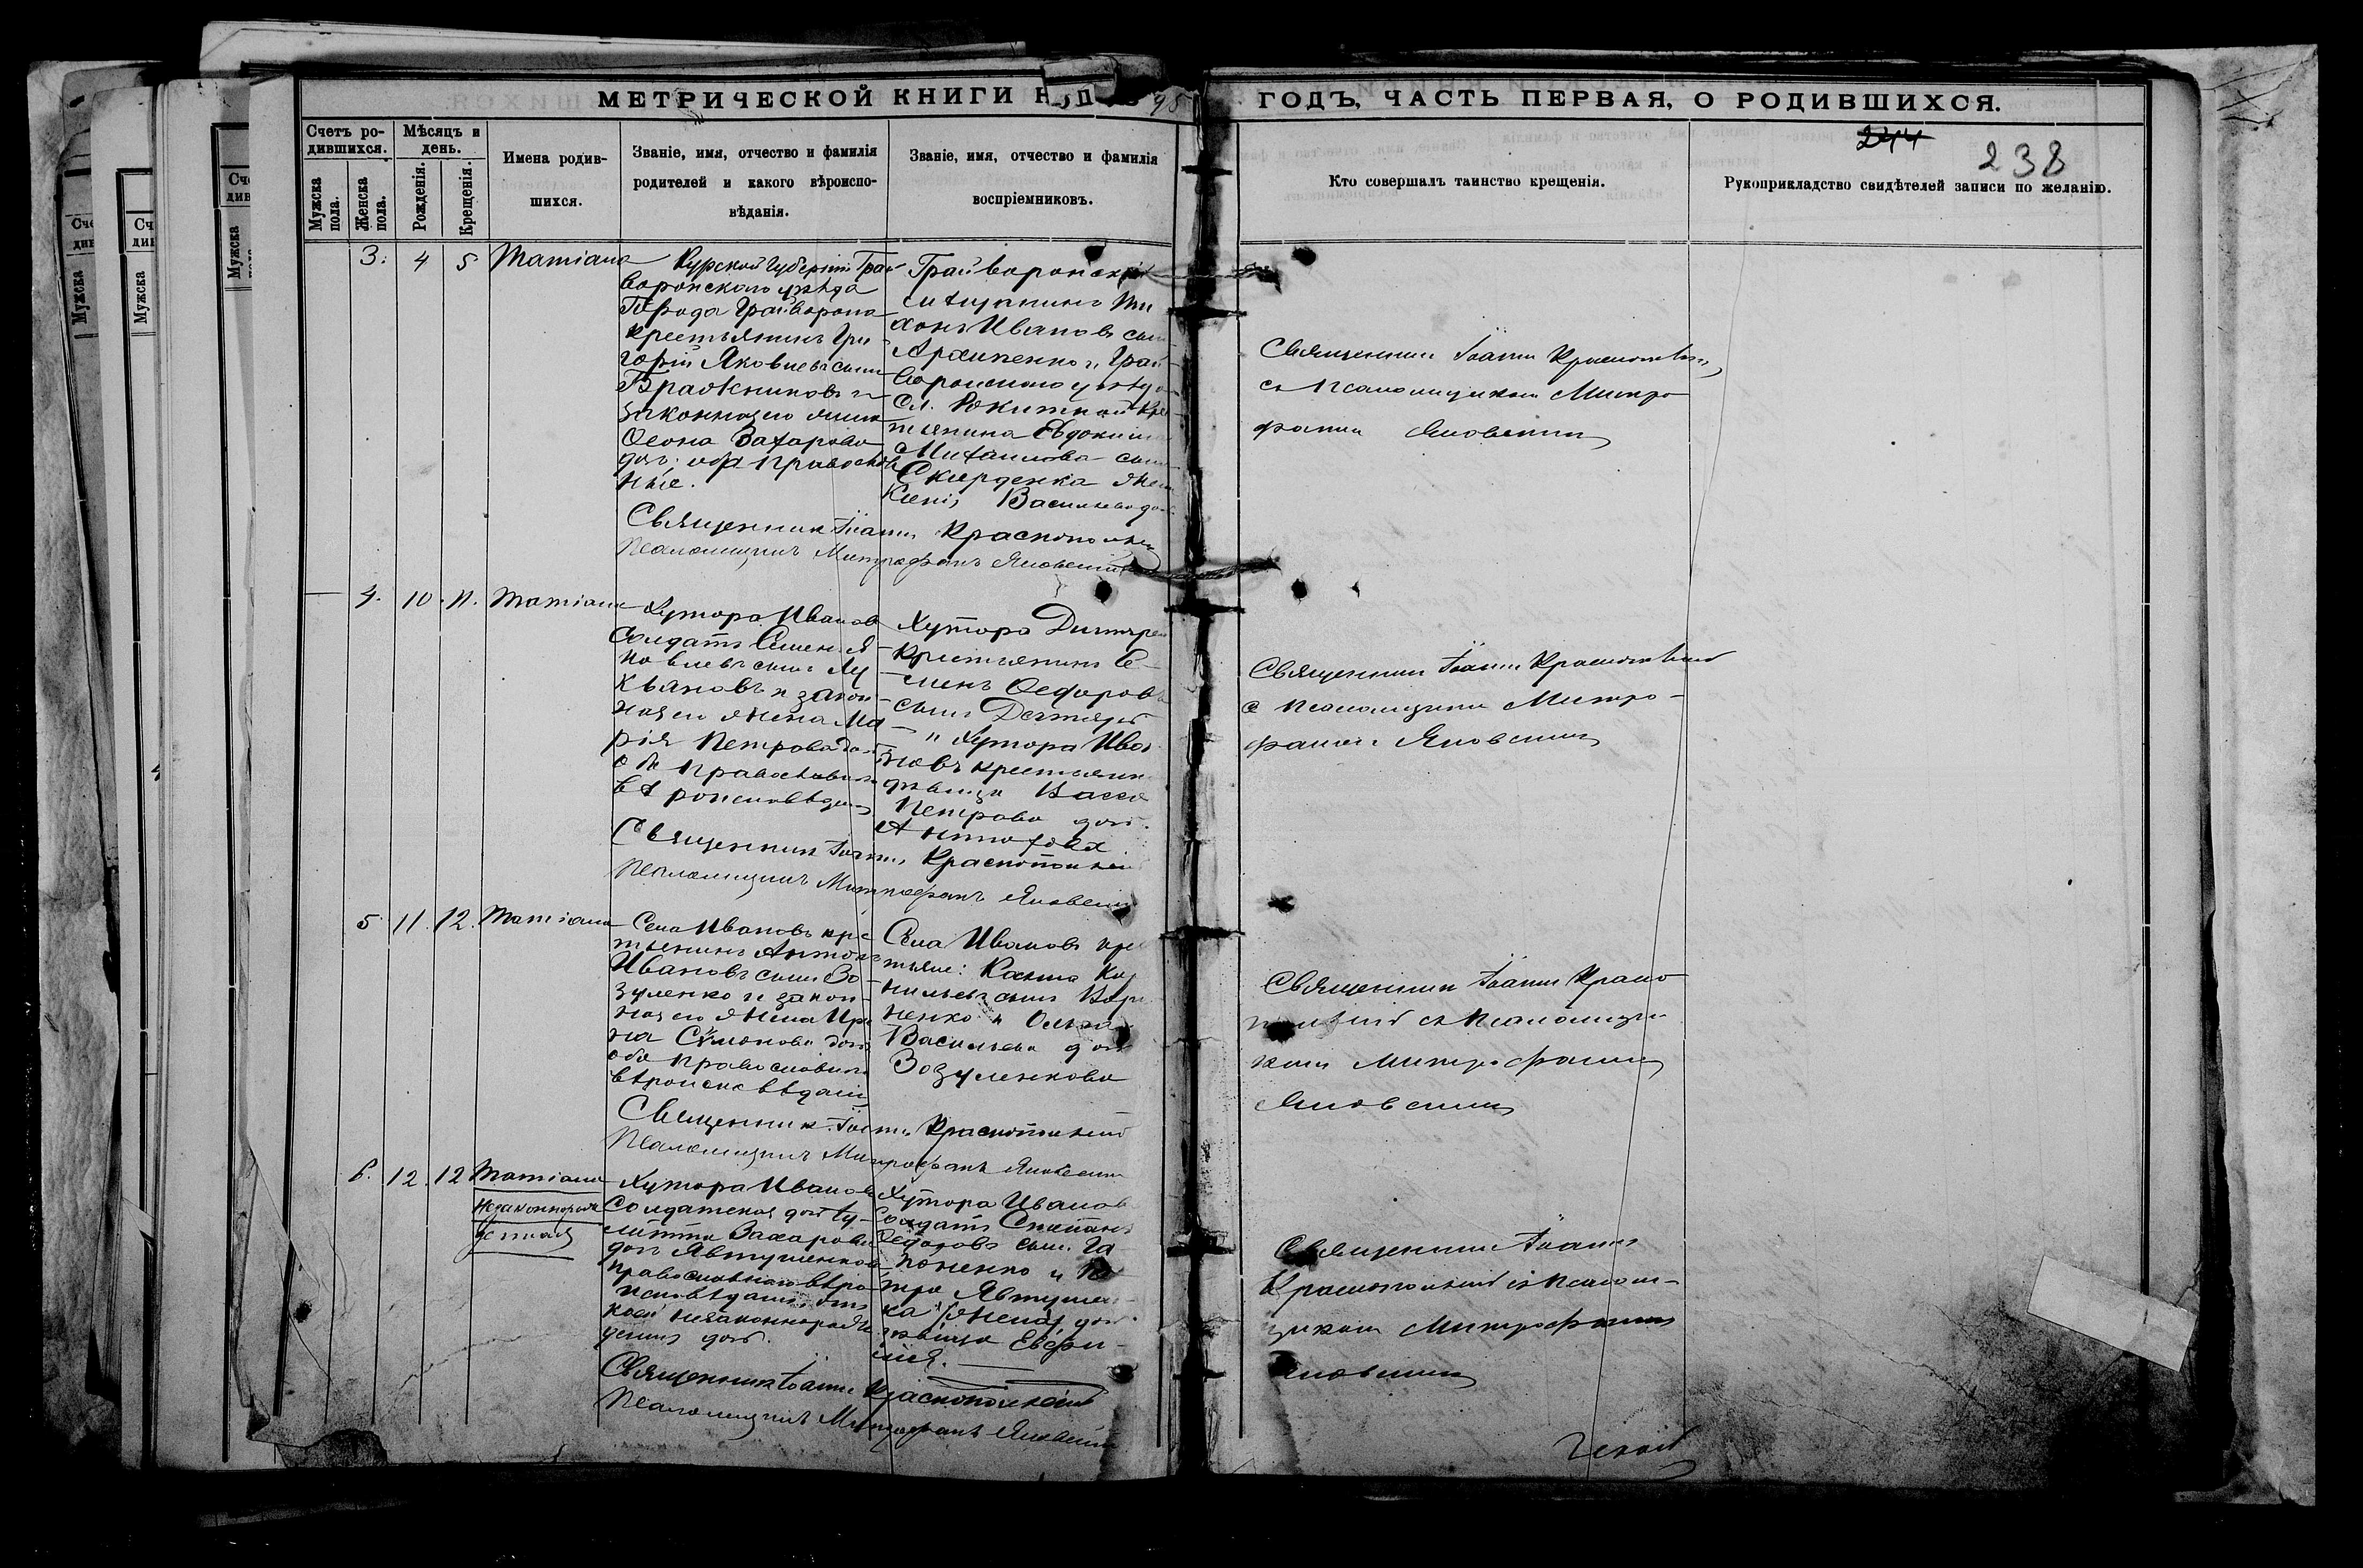 МЕТРИЧЕСКОЙ КНИГИ НА 1895
ГОДЪ, ЧАСТЬ ПЕРВАЯ, О РОДИВШИХСЯ.
244
238
Счетъ ро-
дившихся.
Мужска
пола.
Женска
пола.
Мѣсяцъ и
день.
Рожденія.
Крещенія.
Имена родив-
шихся.
Званіе, имя, отчество и фамилія
родителей и какого вѣроиспо-
вѣданія.
Званіе, имя, отчество и фамилія
воспріемниковъ.
Кто совершалъ таинство крещенія.
Рукоприкладство свидѣтелей записи по желанію.
3. 4 5 Татіана
Курской Губерніи Грай
воронского уѣзда
Города Грайворона
крестьянинъ Гри
горій Яковлевъ сынъ
Бражниковъ и
законная его жена
Захарова
дот. оба православ
ные.
Грайворонскій
Ти
хонъ Ивановъ сын
Архипенко и Грай
воронского уѣзда
Сл. Ракитной Кре
тьянина Евдоким
Михаилова сын
жен
Ксенія Васильева доч
Священникъ Іоаннъ Краснопольскій
Псаломщикъ Митрофанъ Яновскій
Священникъ Іоаннъ Краснопольскій
съ Псаломщикомъ Митро
фаномъ Яновскимъ
4. 10. 11. Татіана
Хутора Иванов
Солдатъ Семенъ Я
ковлевъ сынъ Лу
кьяновъ и закон
ная его жена Ма
рія Петрова доч
оба православнаго
вѣроисповѣданія
Хутора Дегтярен
крестьянинъ Се
менъ Ѳедоровъ
сынъ Дегтярев
и Хутора Ива
новъ крестьянк
дѣвица Васса
Петрова доч.
Священникъ Іоаннъ Краснопольскій
Псаломщикъ Митрофанъ Яновскій
Священникъ Іоаннъ Краснопольскій
съ псаломщикомъ Митро-
фаномъ Яновскимъ
5 11. 12. Татіана
Села Ивановъ кре
тьянинъ Антонъ
Ивановъ сынъ Зо
зуленко и закон
ная его жена Ири
на Сѵмонова доч
оба православнаго
вѣроисповѣданія
Села Ивановъ кре
тьяне: Козьма Кор
нильевъ сынъ
ненко и Ольга
Васильева доч
Зозуленкова
Священникъ Іоаннъ Краснопольскій
Псаломщикъ Митрофанъ Яновскій
Священникъ Іоаннъ Красно
польскій съ Псаломщи
комъ Митрофаномъ
Яновскимъ
6. 12. 12 Татіана
Незаконнорож
денная
Хутора Иванов
Солдатская доч Іу
литта Захарова
доч Явтушенкова
православнаго вѣро
исповѣданія отъ
коей незаконнорож
денная доч.
Хутора Иванов
Солдатъ Стефанъ
Ѳедоровъ сын. Га
поненко и Пе
тра Явтушен
ка жена доч.
дѣвица Евфи
мія.
Священникъ Іоаннъ Краснопольскій
Псаломщикъ Митрофанъ Яновскій
Священникъ Іоаннъ
Краснопольскій съ Псалом-
щикомъ Митрофаномъ
Яновскимъ